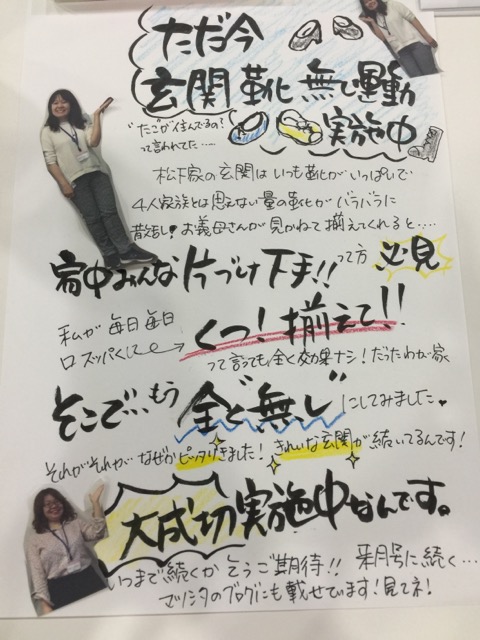 ただ今
玄関靴無し運動
実施中
"たこが住んでるの?"
って言われてた……
松下家の玄関はいつも靴がいっぱいで
4人家族とは思えない量の靴がバラバラに
散乱!お義母さんが見かねて揃えてくれると……
家中みんな片づけ下手!!って方必見
私が毎日毎日
口スッパくして→くつ!揃えて!!
って言っても全く効果ナシ!だったわが家
そこで…もう全ど無しにしてみました♥
それがそれが…なぜかピッタリきました!きれいな玄関が続いてるんです!
大成功実施中なんです。
いつまで続くかどうご期待!!来月号に続く…
マツシタのブログにも載せています!見てネ!